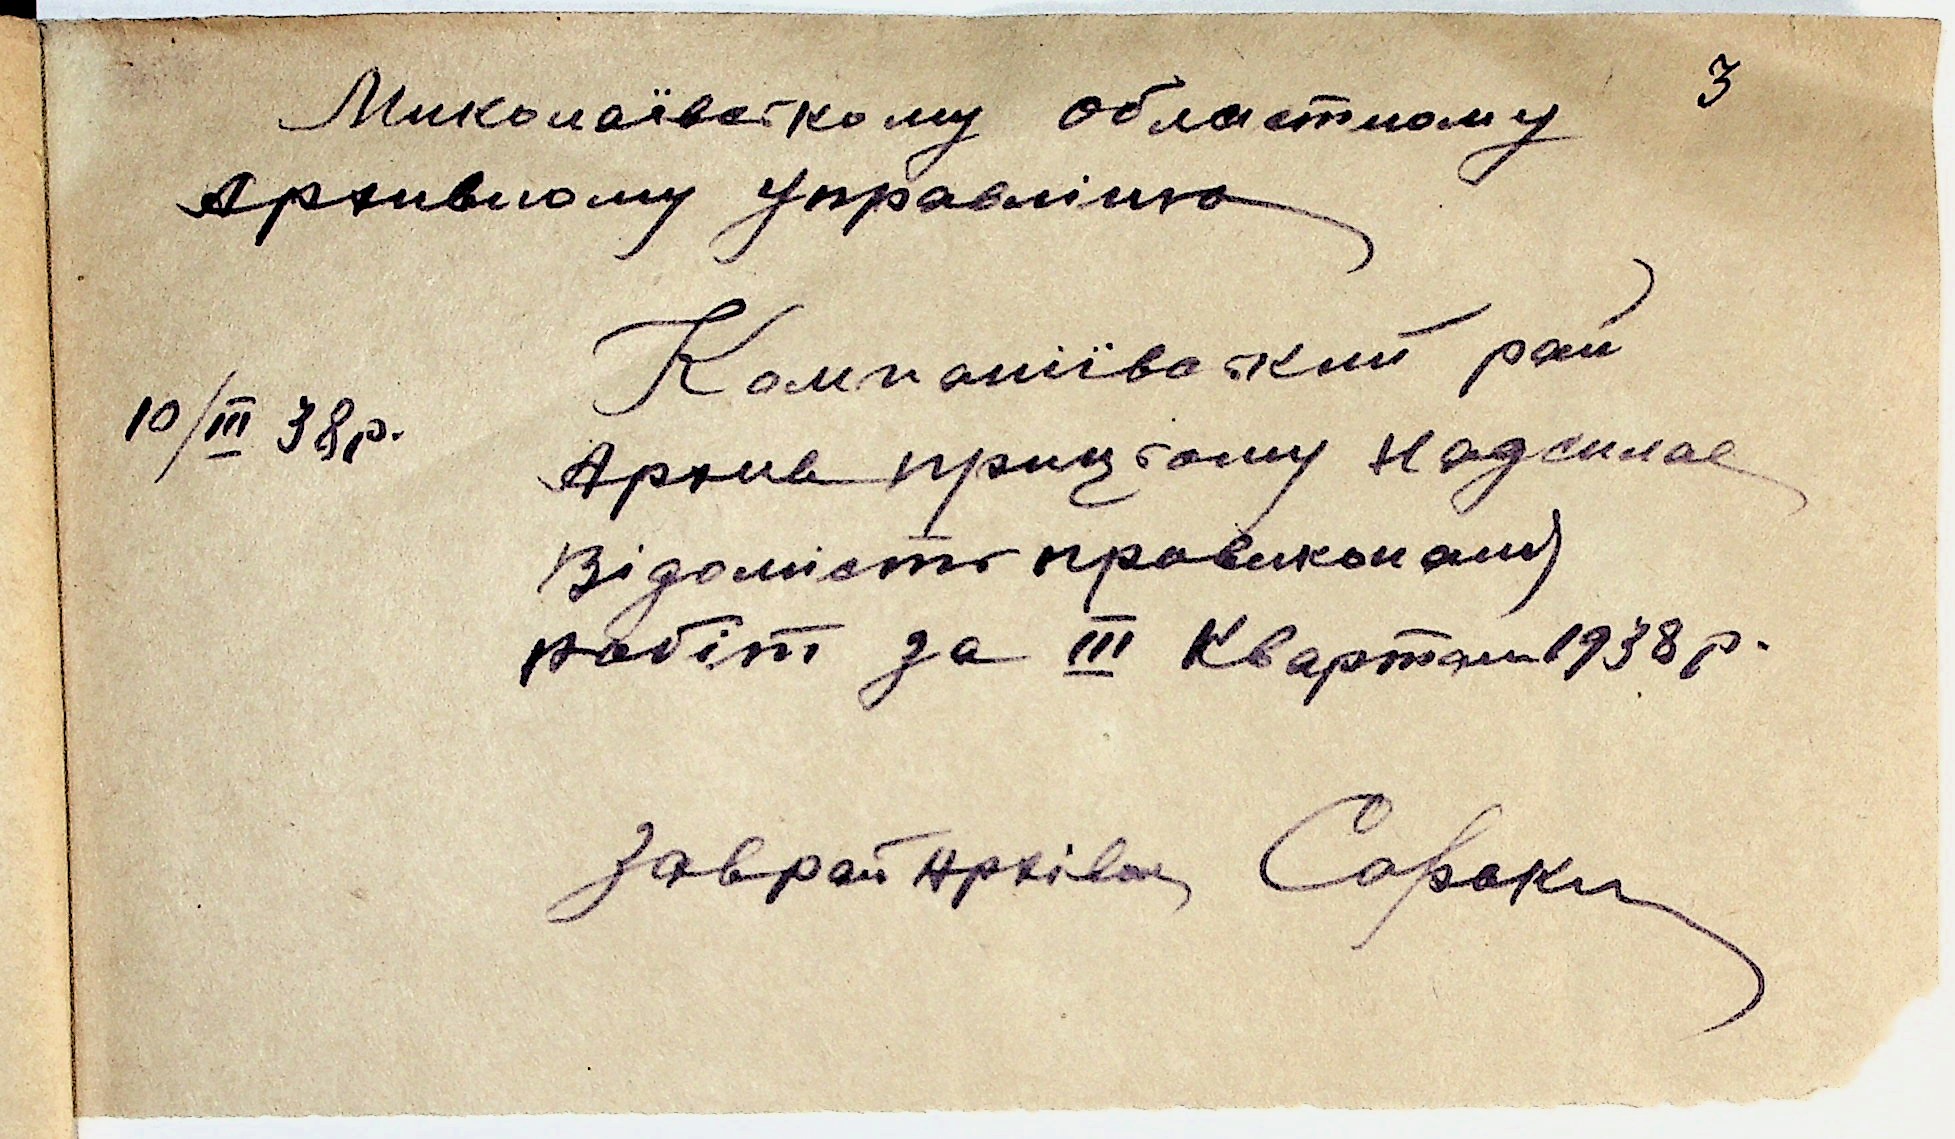 3
Миколаївському областному
Архивному Управлінню
Компаніївський рай
10/III 38р.
Архив прицьому надсилае
Відомість провиконання
робіт за III Квартал 1938 р.
Заврайархівом Сороки